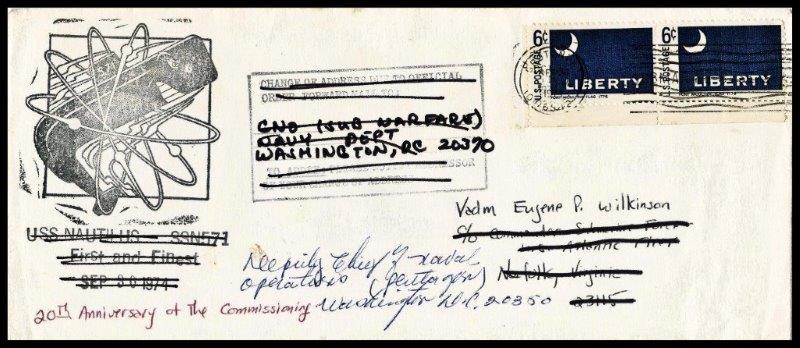 6¢ 6¢
U.S. POSTAGE U.S. POSTAGE
LIBERTY LIBERTY
CHANGE OF ADDRESS DUE TO OFFICIAL
ORDER FORWARD MAIL TO:
CNO (SUB WARFARE)
NAVY DEPT
WASHINGTON, DC 20370
Vadm Eugene P. Wilkinson
c/o Commander Submarine Force
U.S. Atlantic Fleet
Norfolk, Virginia
23115
USS NAUTILUS SSN571
First and Finest
SEP 30 1974
Deputy Chief of Naval
Operations (Pentagon)
Washington D.C. 20350
20th Anniversary of The Commissioning